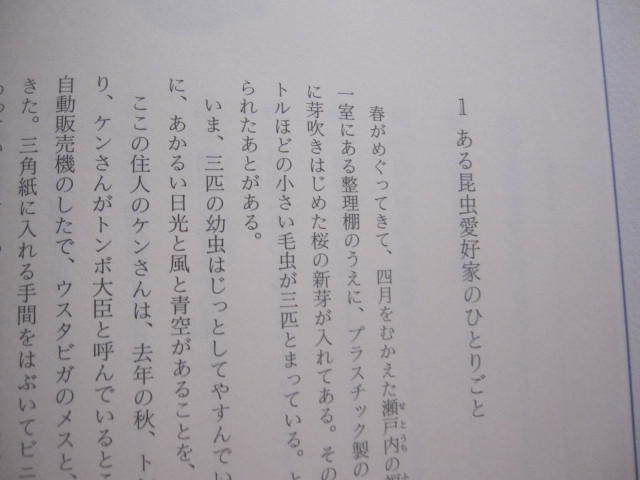 1 ある昆虫愛好家のひとりごと
春がめぐってきて、四月をむかえた瀬戸内の
せとうち
一室にある整理棚のうえに、プラスチック製の
に芽吹きはじめた桜の新芽が入れてある。その
トルほどの小さい毛虫が三匹とまっている。と
られたあとがある。
いま、三匹の幼虫はじっとしてやすんでい
に、あかるい日光と風と青空があることを、
ここの住人のケンさんは、去年の秋、ト
り、ケンさんがトンボ大臣と呼んでいるとこ
自動販売機のしたで、ウスタビガのメスと、
きた。三角紙に入れる手間をはぶいてビニ